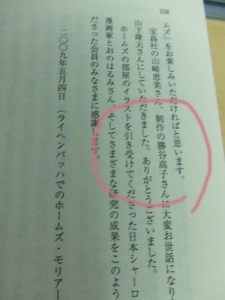 236
ムズ』をお楽しみいただければと思います。
宝島社の山崎恵美さん、制作の勝谷高子さんに大変お世話になり
山下隆夫さんにしていただきました。ありがとうございました。
ホームズの部屋のイラストを引き受けてくださった日本シャーロ
漫画家とおのはるみさん、そしてさまざまな研究の成果をこのよう
ださった会員のみなさまに感謝します。
二〇〇九年五月四日（ライヘンバッハでのホームズ・モリアー